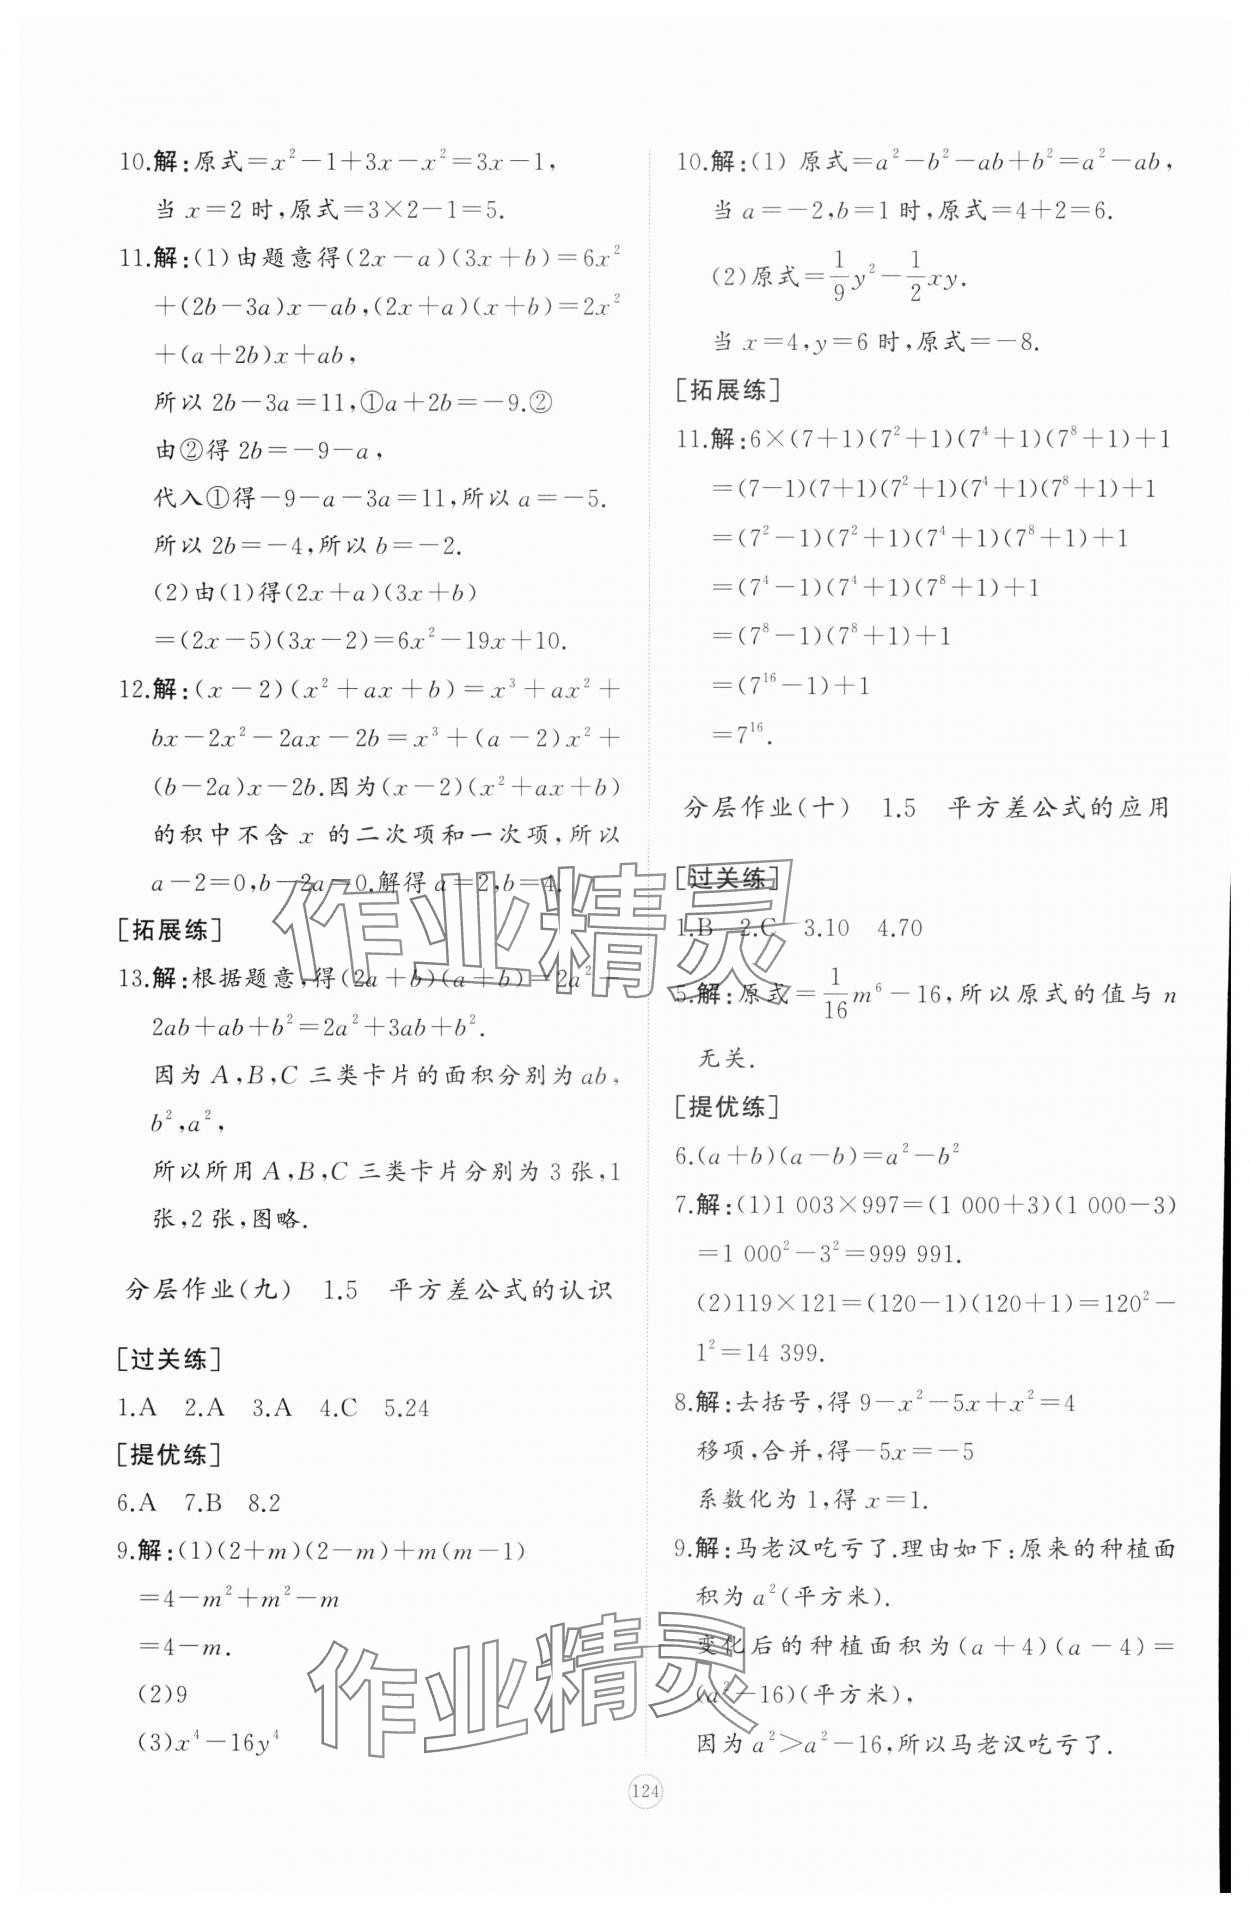 10.解:原式=x²-1+3x-x²=3x-1,
当 x=2 时,原式=3×2-1=5.
11.解:(1)由题意得(2x-a)(3x+b)=6x²
+(2b-3a)x-ab,(2x+a)(x+b)=2x²
+(a+2b)x+ab,
所以 2b-3a=11,①a+2b=-9.②
由②得 2b=-9-a,
代入①得-9-a-3a=11,所以 a=-5.
所以 2b=-4,所以 b=-2.
(2)由(1)得(2x+a)(3x+b)
=(2x-5)(3x-2)=6x²-19x+10.
12.解:(x-2)(x²+ax+b)=x³+ax²+
bx-2x²-2ax-2b=x³+(a-2)x²+
(b-2a)x-2b.因为(x-2)(x²+ax+b)
的积中不含 x 的二次项和一次项,所以
a-2=0,b-2a=0.解得 a=2,b=4.
[拓展练]
13.解:根据题意,得(2a+b)(a+b)=2a²+
2ab+ab+b²=2a²+3ab+b².
因为 A,B,C 三类卡片的面积分别为 ab,
b²,a²,
所以所用 A,B,C 三类卡片分别为 3 张,1
张,2 张,图略.
分层作业(九) 1.5 平方差公式的认识
[过关练]
1.A 2.A 3.A 4.C 5.24
[提优练]
6.A 7.B 8.2
9.解:(1)(2+m)(2-m)+m(m-1)
=4-m²+m²-m
=4-m.
(2)9
(3)x⁴-16y⁴
10.解:(1) 原式=a²-b²-ab+b²=a²-ab,
当 a=-2,b=1 时,原式=4+2=6.
(2)原式=1/9y²-1/2xy.
当 x=4,y=6 时,原式=-8.
[拓展练]
11.解:6×(7+1)(7²+1)(7⁴+1)(7⁸+1)+1
=(7-1)(7+1)(7²+1)(7⁴+1)(7⁸+1)+1
=(7²-1)(7²+1)(7⁴+1)(7⁸+1)+1
=(7⁴-1)(7⁴+1)(7⁸+1)+1
=(7⁸-1)(7⁸+1)+1
=(7¹⁶-1)+1
=7¹⁶.
分层作业(十) 1.5 平方差公式的应用
[过关练]
1.B 2.C 3.10 4.70
5.解:原式=1/16m⁶-16,所以原式的值与 n
无关.
[提优练]
6.(a+b)(a-b)=a²-b²
7.解:(1)1 003×997=(1 000+3)(1 000-3)
=1 000²-3²=999 991.
(2)119×121=(120-1)(120+1)=120²-
1²=14 399.
8.解:去括号,得 9-x²-5x+x²=4
移项,合并,得-5x=-5
系数化为 1,得 x=1.
9.解:马老汉吃亏了.理由如下:原来的种植面
积为 a²(平方米).
变化后的种植面积为(a+4)(a-4)=
(a²-16)(平方米),
因为 a²>a²-16,所以马老汉吃亏了.
124
作业精灵
作业精灵